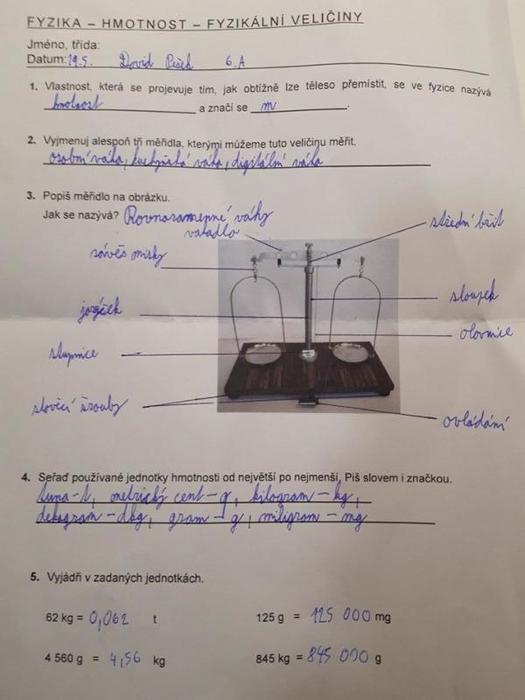 FYZIKA – HMOTNOST – FYZIKÁLNÍ VELIČINY
Jméno, třída:
Datum: 19.5. David 6.A
1. Vlastnost, která se projevuje tím, jak obtížně lze těleso přemístit, se ve fyzice nazývá
hmotnost a značí se m.
2. Vyjmenuj alespoň tři měřidla, kterými můžeme tuto veličinu měřit.
osobní váha, kuchyňská váha, digitální váha
3. Popiš měřidlo na obrázku.
Jak se nazývá? Rovnoramenné váhy
vahadlo
střední břit
závěs misky
sloupek
jazýček
olovnice
stavěcí šrouby
ovládání
4. Seřaď používané jednotky hmotnosti od největší po nejmenší, Piš slovem i značkou.
tuna-t, metrický cent-q, kilogram-kg,
dekagram-dkg, gram-g, miligram-mg
5. Vyjádři v zadaných jednotkách.
62 kg = 0,062 t 125 g = 125 000 mg
4 560 g = 4,56 kg 845 kg = 845 000 g